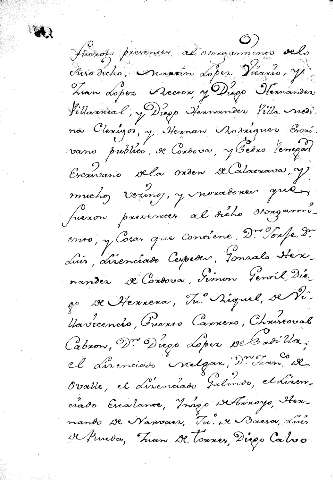 presentes, al otorgamiento de lo
Susodicho, Martin Lopez Vicario, y
Juan Lopez Rector, y Diego Hernandez
Villarreal, y Diego Hernandez Villa Medi
na Clerigos, y, Hernan Rodriguez Escri
vano publico, de Cordova, y Pedro
Escrivano de la orden de Calatrava, y
muchos vezinos, y moradores que
fueron presentes al dicho otorgami
ento, y Cosas que contiene, Dn. Jorse Dn.
Luis, Lizenciado Cespedes, Gonzalo Her-
nandez de Cordova, Simon Gentil Die
go de Herrera, Juo. Miguel, de Vi
llavicencio, Puerto Carrero, Christoval
Cabron, Dn. Diego Lopez de
el Lizenciado Melgar, Dn. Franco. de
Ovalle, el Lizenciado Galindo, el Lizen-
ciado Escalante, Yñigo de Arroyo, Her-
nando de Narvaez, Juo. de Baesa, Luis
de Rueda, Juan de Torres, Diego Calvo